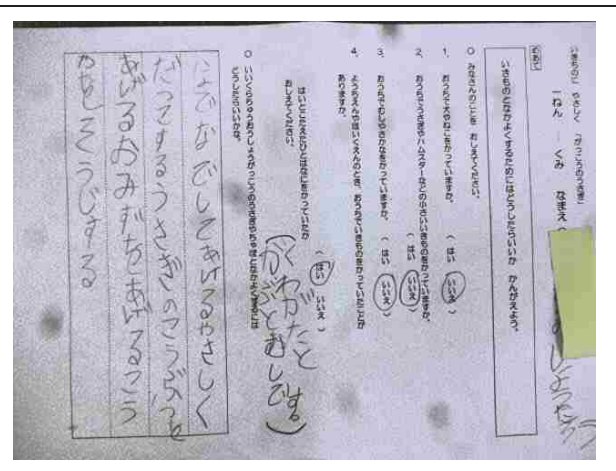 いきものに やさしく 「がっこうのうさぎ」
一ねん くみ なまえ（
めあて
いきものとなかよくするためにはどうしたらいいか かんがえよう。
○ みなさんのことを おしえてください。
1. おうちで犬やねこをかっていますか。 （ はい いいえ ）
2. おうちでうさぎやハムスターなどの小さいいきものをかっていますか。
（ はい いいえ ）
3. おうちでむしやさかなをかっていますか。 （ はい いいえ ）
4. ようちえんやほいくえんのとき、おうちでいきものをかっていたことが
ありますか。 （ はい いいえ ）
はいとこたえたひとはなにをかっていたか
おしえてください。
（くわがたと
かぶとむしです）
○ いいくらちゅうおうしょうがっこうのうさぎやちゃぼとなかよくするには
どうしたらいいかな。
なでてあげるやさしく
だっこするうさぎの
あげるおみずをあげる
そうじする